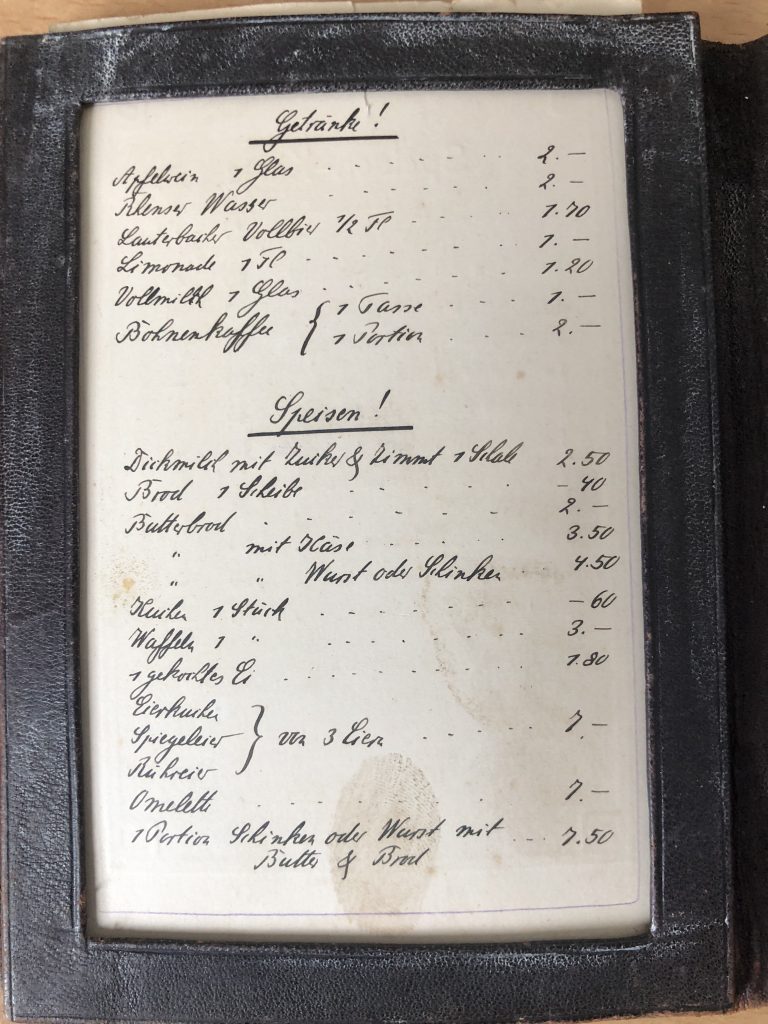 Getränke!
Apfelwein 1 Glas . . . . . . 2.—
Rhenser Wasser . . . . . . 2.—
Lauterbacher Vollbier 1/2 Fl . . . . 1.70
Limonade 1 Fl . . . . . . 1.—
Vollmilch 1 Glas . . . . . . 1.20
Bohnenkaffee { 1 Tasse . . . . 1.—
1 Portion . . . . 2.—
Speisen!
Dickmilch mit Zucker & Zimmt 1 Schale 2.50
Brod 1 Scheibe . . . . . . –40
Butterbrod . . . . . . . . 2.—
" mit Käse . . . . . . 3.50
" " Wurst oder Schinken 4.50
Kuchen 1 Stück . . . . . . –60
Waffeln 1 " . . . . . . 3.—
1 gekochtes Ei . . . . . . 1.80
Eierkuchen
Spiegeleier } von 3 Eiern . . . . 7.—
Rühreier
Omelette . . . . . . . . 7.—
1 Portion Schinken oder Wurst mit . . . 7.50
Butter & Brod